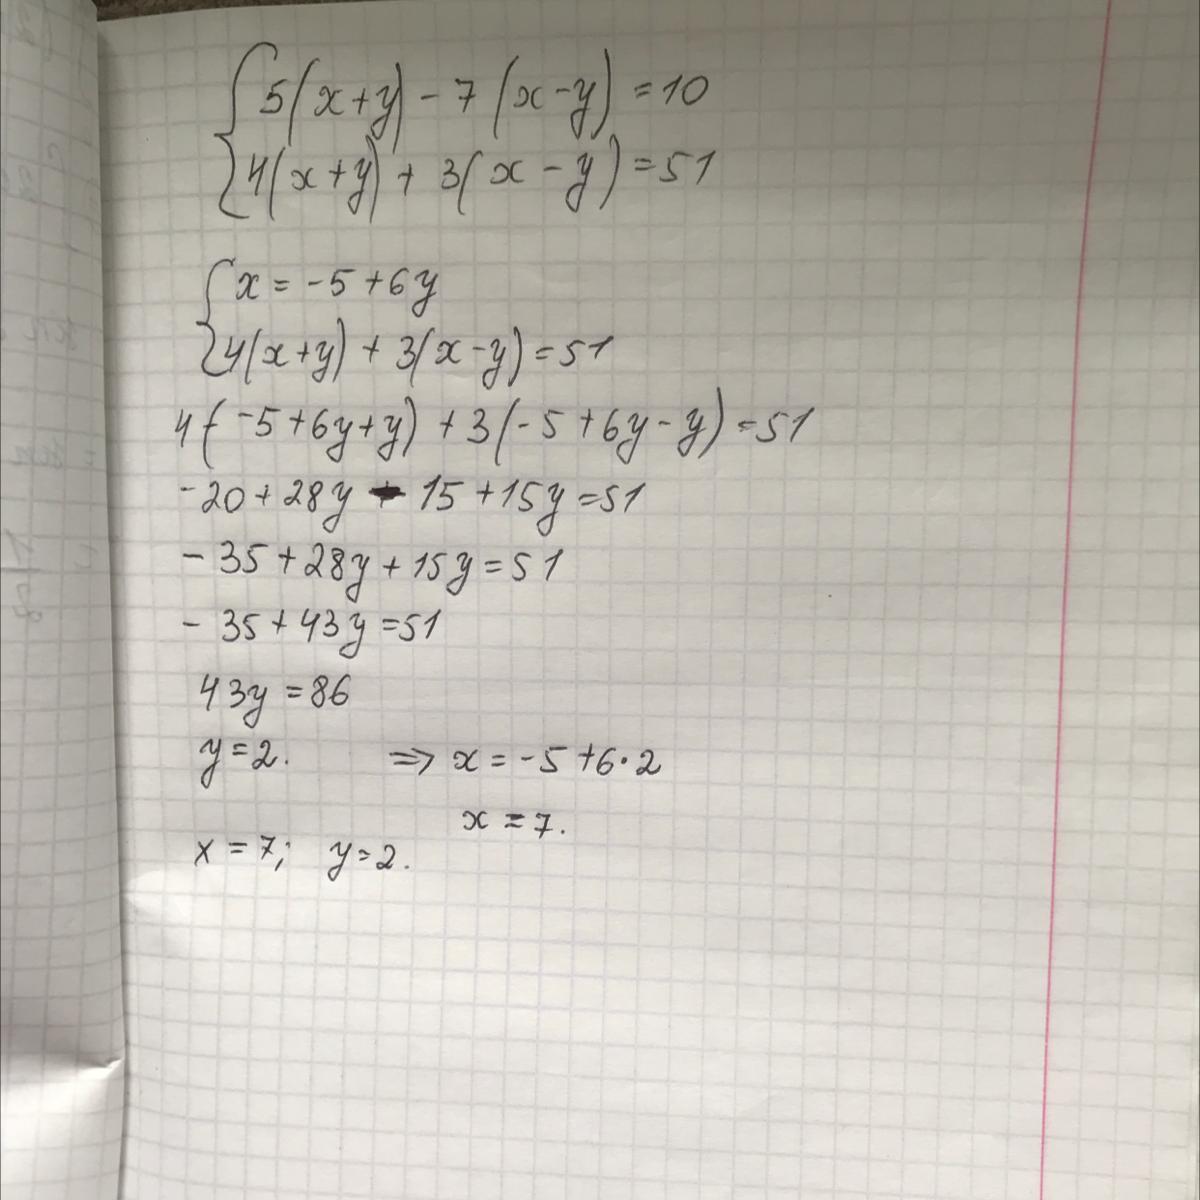 5(x+y) - 7(x-y) = 10
4(x+y) + 3(x-y) = 51
x = -5 + 6y
4(x+y) + 3(x-y) = 51
4(-5+6y+y) + 3(-5+6y-y) = 51
-20 + 28y - 15 + 15y = 51
- 35 + 28y + 15y = 51
- 35 + 43y = 51
43y = 86
y = 2. => x = -5 + 6·2
x = 7.
x = 7; y = 2.